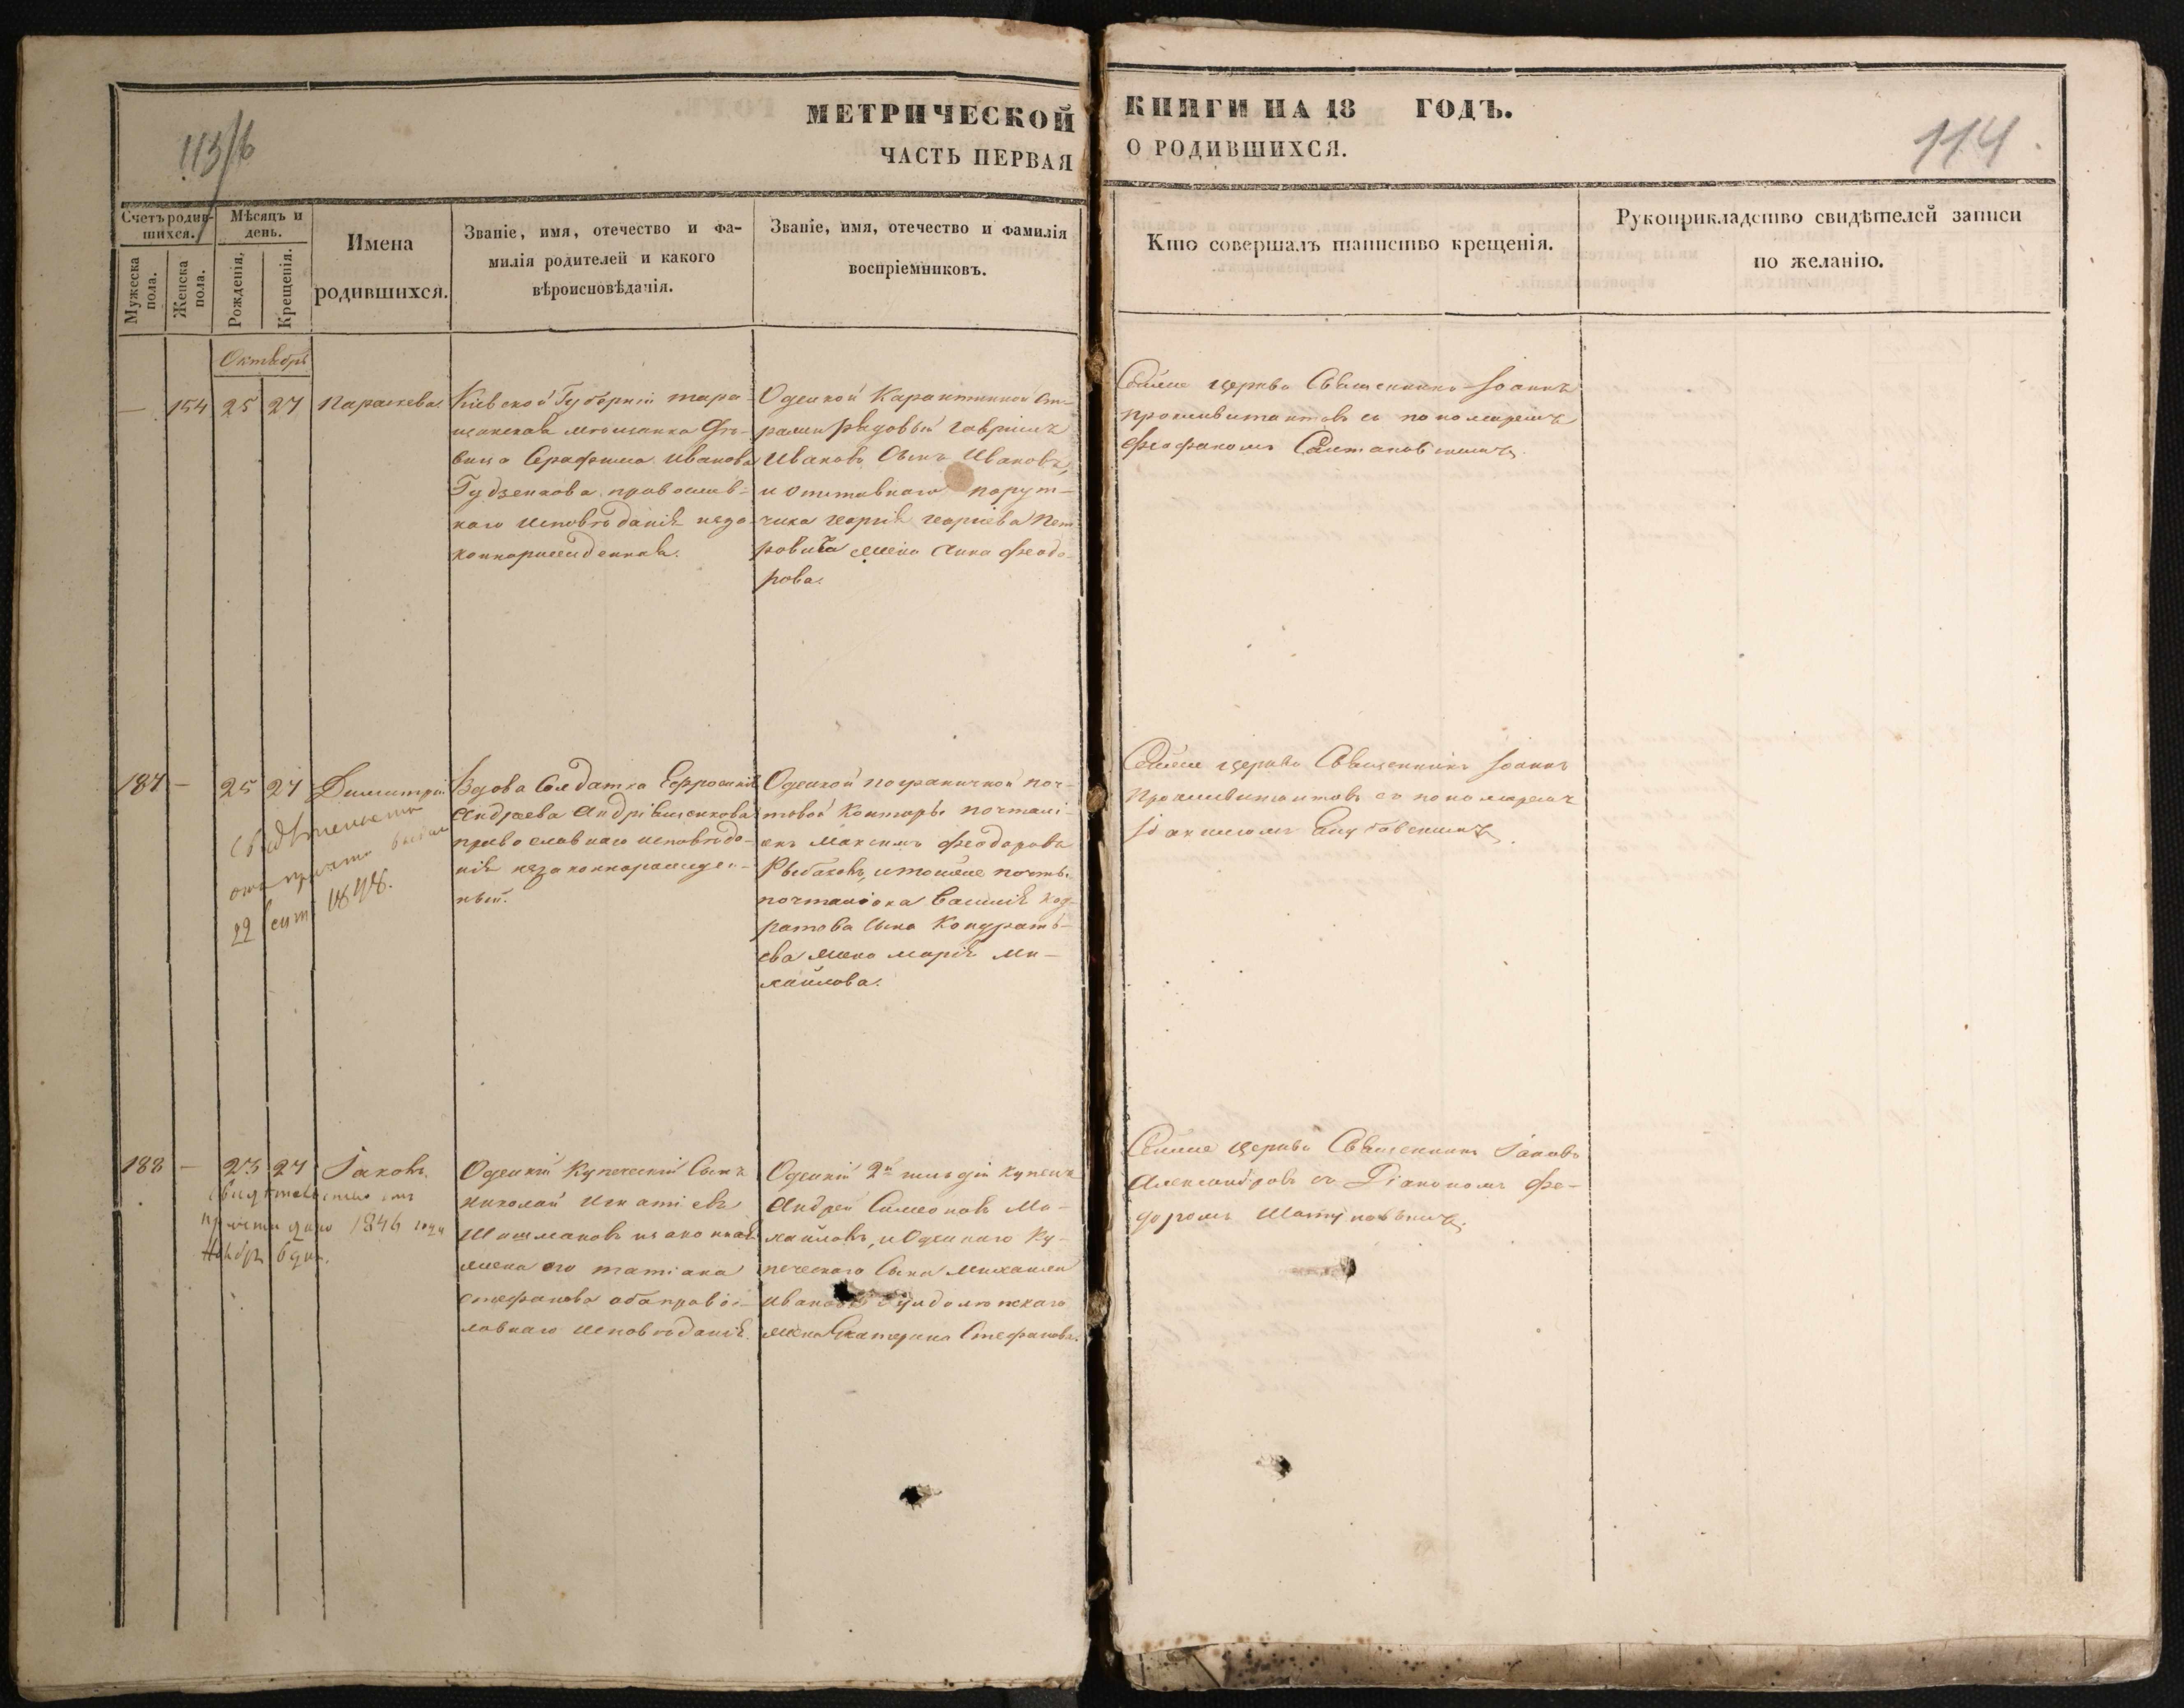 113/б
МЕТРИЧЕСКОЙ КНИГИ НА 18 ГОДЪ.
ЧАСТЬ ПЕРВАЯ О РОДИВШИХСЯ.
114
Счетъ родив-
шихся.
Мужеска
пола.
Женска
пола.
Мѣсяцъ и
день.
Рожденія.
Крещенія.
Имена
родившихся.
Званіе, имя, отечество и фа-
милія родителей и какого
вѣроисповѣданія.
Званіе, имя, отечество и фамилія
воспріемниковъ.
Кто совершалъ таинство крещенія.
Рукоприкладство свидѣтелей записи
по желанію.
Октябрь
— 154 25 27 Параскева
Кіевской Губерніи тара-
щанская мѣщанка дѣ-
вица Серафима Иванова
Гудзенкова православ-
наго исповѣданія неза-
коннорожденная.
Одесской Карантинной
рядовый Гавріилъ
Ивановъ Сынъ Ивановъ,
и отставнаго порут-
чика Георгія Георгіева Пет-
ровича жена Анна Феодо-
рова.
Сея церкви Священникъ Іоаннъ
съ пономаремъ
Феофаномъ
187 — 25 27 Димитрій
Свидѣтельство
отъ причта выдан
22 сент 1848.
Вдова Солдатка Ефросинія
Андреева Андріевщенкова
православнаго исповѣда-
нія незаконнорожден-
ный.
Одесской пограничной поч-
товой Конторы почталі-
онъ Максимъ Феодоровъ
Рыбаковъ, и тойже почты
почталіона Василія Код-
ратова Сына Кондрать-
ева жена Марія Ми-
хайлова.
Сея церкви Священникъ Іоаннъ
съ пономаремъ
188 — 23 27 Іаковъ.
Свидѣтельство отъ
причта дано 1846 года
Ноябрь 6 дня.
Одесскій Купеческій Сынъ
Николай Игнатіевъ
Шишмановъ и законная
жена его Татіана
Стефанова оба правос-
лавнаго исповѣданія.
Одесскій 2й гильдіи купецъ
Андрей Симеоновъ Ми-
хайловъ, и Одесскаго Ку-
печескаго Сына Михаила
Иванова
жена Екатерина Стефанова.
Сея Церкви Священникъ Іаковъ
Александровъ съ Діакономъ Фе-
доромъ